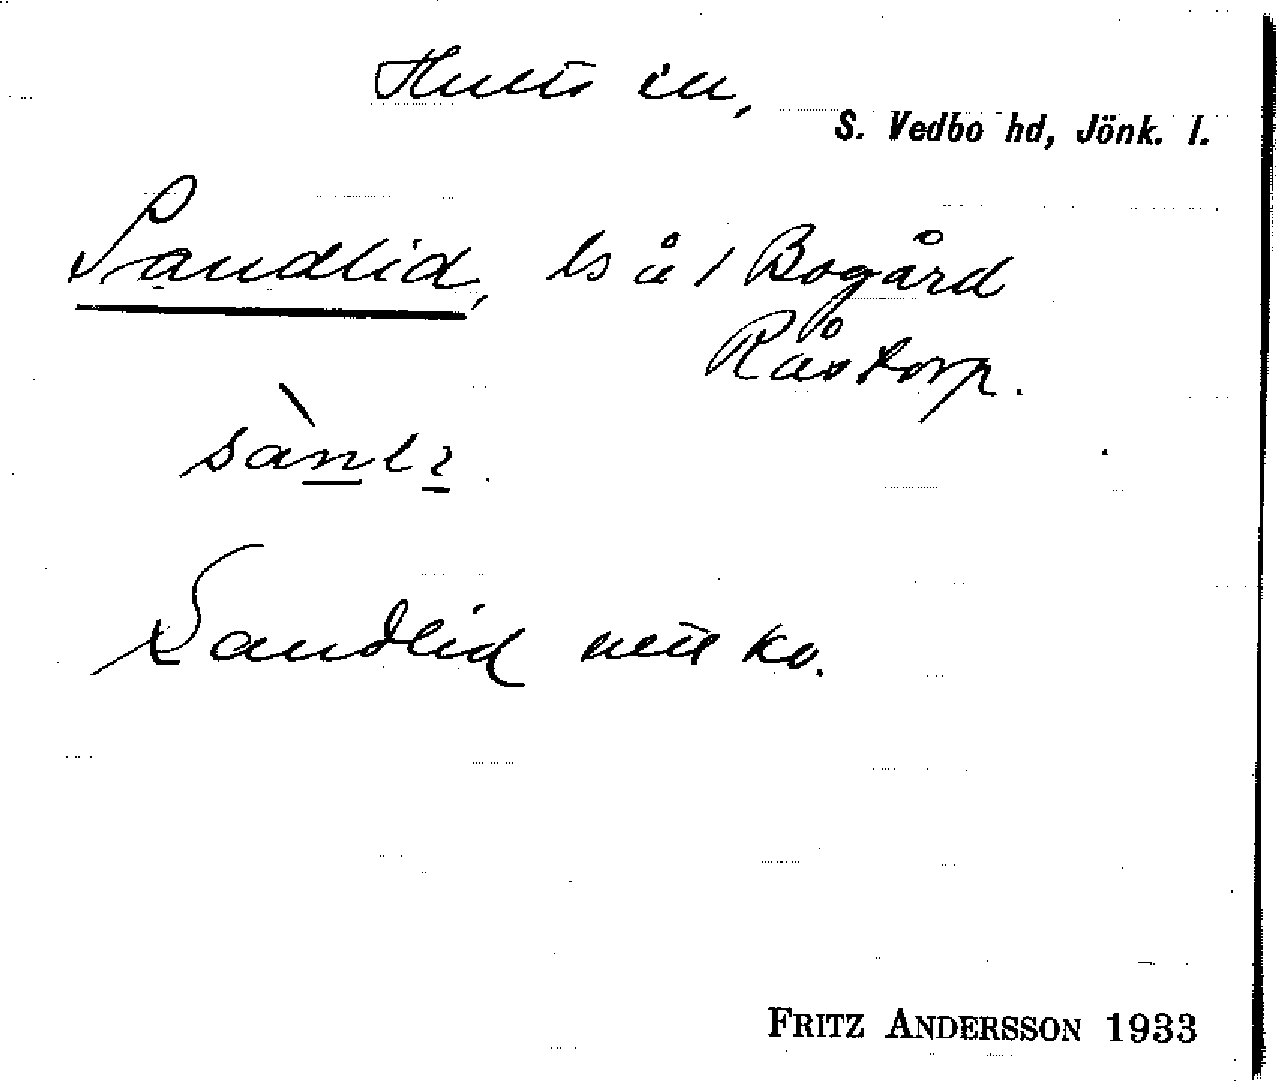 Hults sn,
S. Vedbo hd, Jönk. l.
Sandlid, ls å 1 Bogård
Råstorp.
sànlı.
Sandlid utt ko.
FRITZ ANDERSSON 1933